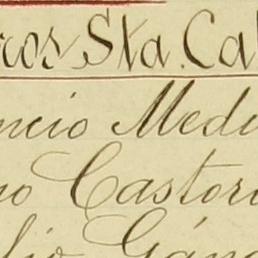 ros Sta. Cal
ncio Medi
no Castori
lio Gánd